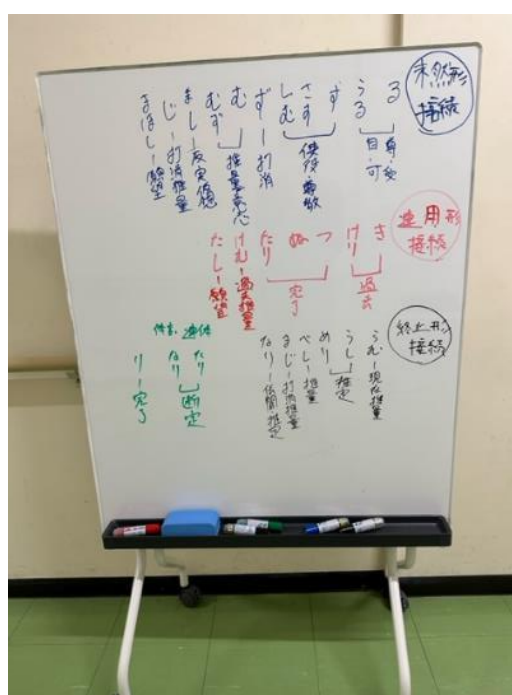 未然形接続
る
うる
尊・受
自・可
す
さす
しむ
使役・尊敬
ず－打消
む
むず
推量・意志
まし－反実仮想
じ－打消推量
まほし－願望
連用形接続
き
けり
過去
つ
ぬ
たり
完了
けむ－過去推量
たし－願望
終止形接続
らむ－現在推量
らし
めり
推定
べし－推量
まじ－打消推量
なり－伝聞推定
体言、連体
たり
なり
断定
り－完了